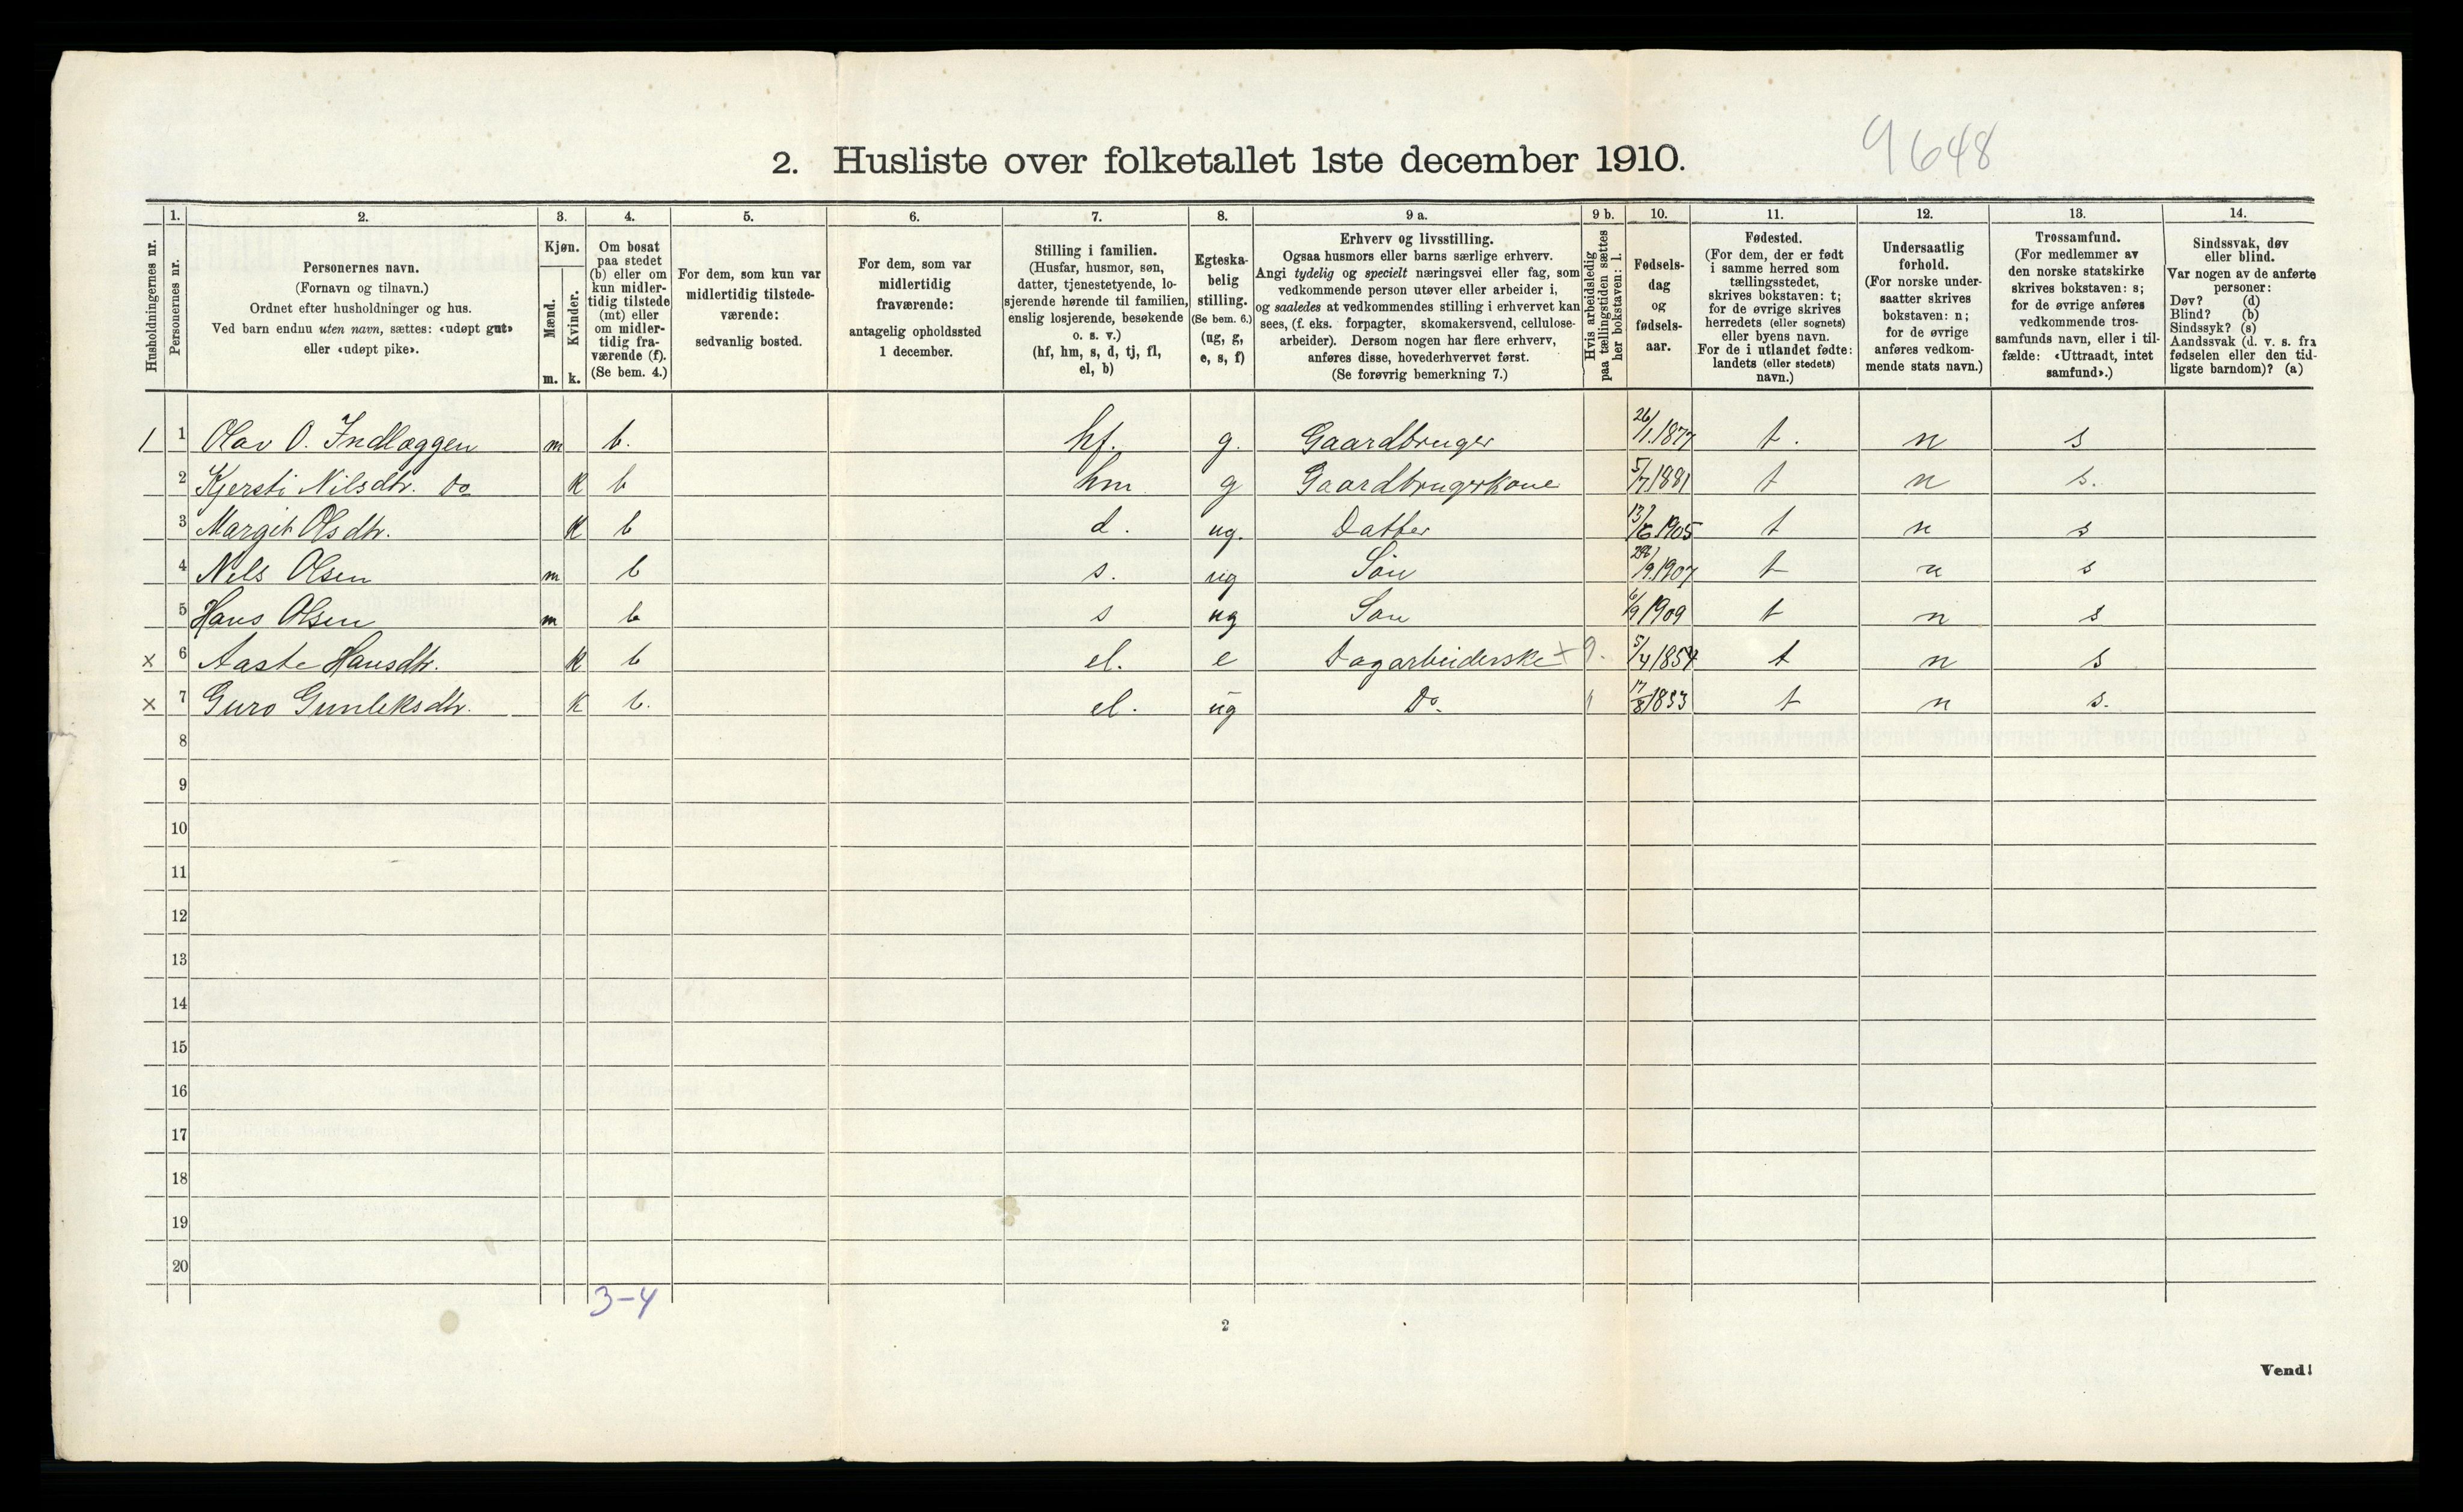 9648
2. Husliste over folketallet 1ste december 1910.
Husholdningernes nr.
1. Personernes nr.
2. Personernes navn.
(Fornavn og tilnavn.)
Ordnet efter husholdninger og hus.
Ved barn endnu uten navn, sættes: «udøpt gut»
eller «udøpt pike».
3. Kjøn.
Mænd. m.
Kvinder. k.
4. Om bosat
paa stedet
(b) eller om
kun midler-
tidig tilstede
(mt) eller
om midler-
tidig fra-
værende (f).
(Se bem. 4.)
5. For dem, som kun var
midlertidig tilstede-
værende:
sedvanlig bosted.
6. For dem, som var
midlertidig
fraværende:
antagelig opholdssted
1 december.
7. Stilling i familien.
(Husfar, husmor, søn,
datter, tjenestetyende, lo-
sjerende hørende til familien,
enslig losjerende, besøkende
o. s. v.)
(hf, hm, s, d, tj, fl,
el, b)
8. Egteska-
belig
stilling.
(Se bem. 6.)
(ug, g,
e, s, f)
9 a. Erhverv og livsstilling.
Ogsaa husmors eller barns særlige erhverv.
Angi tydelig og specielt næringsvei eller fag, som
vedkommende person utøver eller arbeider i,
og saaledes at vedkommendes stilling i erhvervet kan
sees, (f. eks. forpagter, skomakersvend, cellulose-
arbeider). Dersom nogen har flere erhverv,
anføres disse, hovederhvervet først.
(Se forøvrig bemerkning 7.)
9 b. Hvis arbeidsledig
paa tællingstiden sættes
her bokstaven: l.
10. Fødsels-
dag
og
fødsels-
aar.
11. Fødested.
(For dem, der er født
i samme herred som
tællingsstedet,
skrives bokstaven: t;
for de øvrige skrives
herredets (eller sognets)
eller byens navn.
For de i utlandet fødte:
landets (eller stedets)
navn.)
12. Undersaatlig
forhold.
(For norske under-
saatter skrives
bokstaven: n;
for de øvrige
anføres vedkom-
mende stats navn.)
13. Trossamfund.
(For medlemmer av
den norske statskirke
skrives bokstaven: s;
for de øvrige anføres
vedkommende tros-
samfunds navn, eller i til-
fælde: «Uttraadt, intet
samfund».)
14. Sindssvak, døv
eller blind.
Var nogen av de anførte
personer:
Døv? (d)
Blind? (b)
Sindssyk? (s)
Aandssvak (d. v. s. fra
fødselen eller den tid-
ligste barndom)? (a)
1 1 Olav O. Indlæggen m b. hf. g. Gaardbruger 26/1.1877 t. n s
2 Kjersti Nilsdtr. Do k b hm g Gaardbrugerkone 5/7 1881 t n s.
3 Margit Olsdtr. k b d. ug. Datter 13/6 1905 t n s
4 Nils Olsen m b s. ug Søn /9.1907 t n s
5 Hans Olsen m b s ug Søn 6/9 1909 t n s
x 6 Aaste Hansdtr. k b el. e Dagarbeiderske + 9. 5/4 1854 t n s
x 7 Guro Gunleksdtr. k b. el. ug Do. 17/8 1853 t n s.
8
9
10
11
12
13
14
15
16
17
18
19
20
3-4
2
Vend!